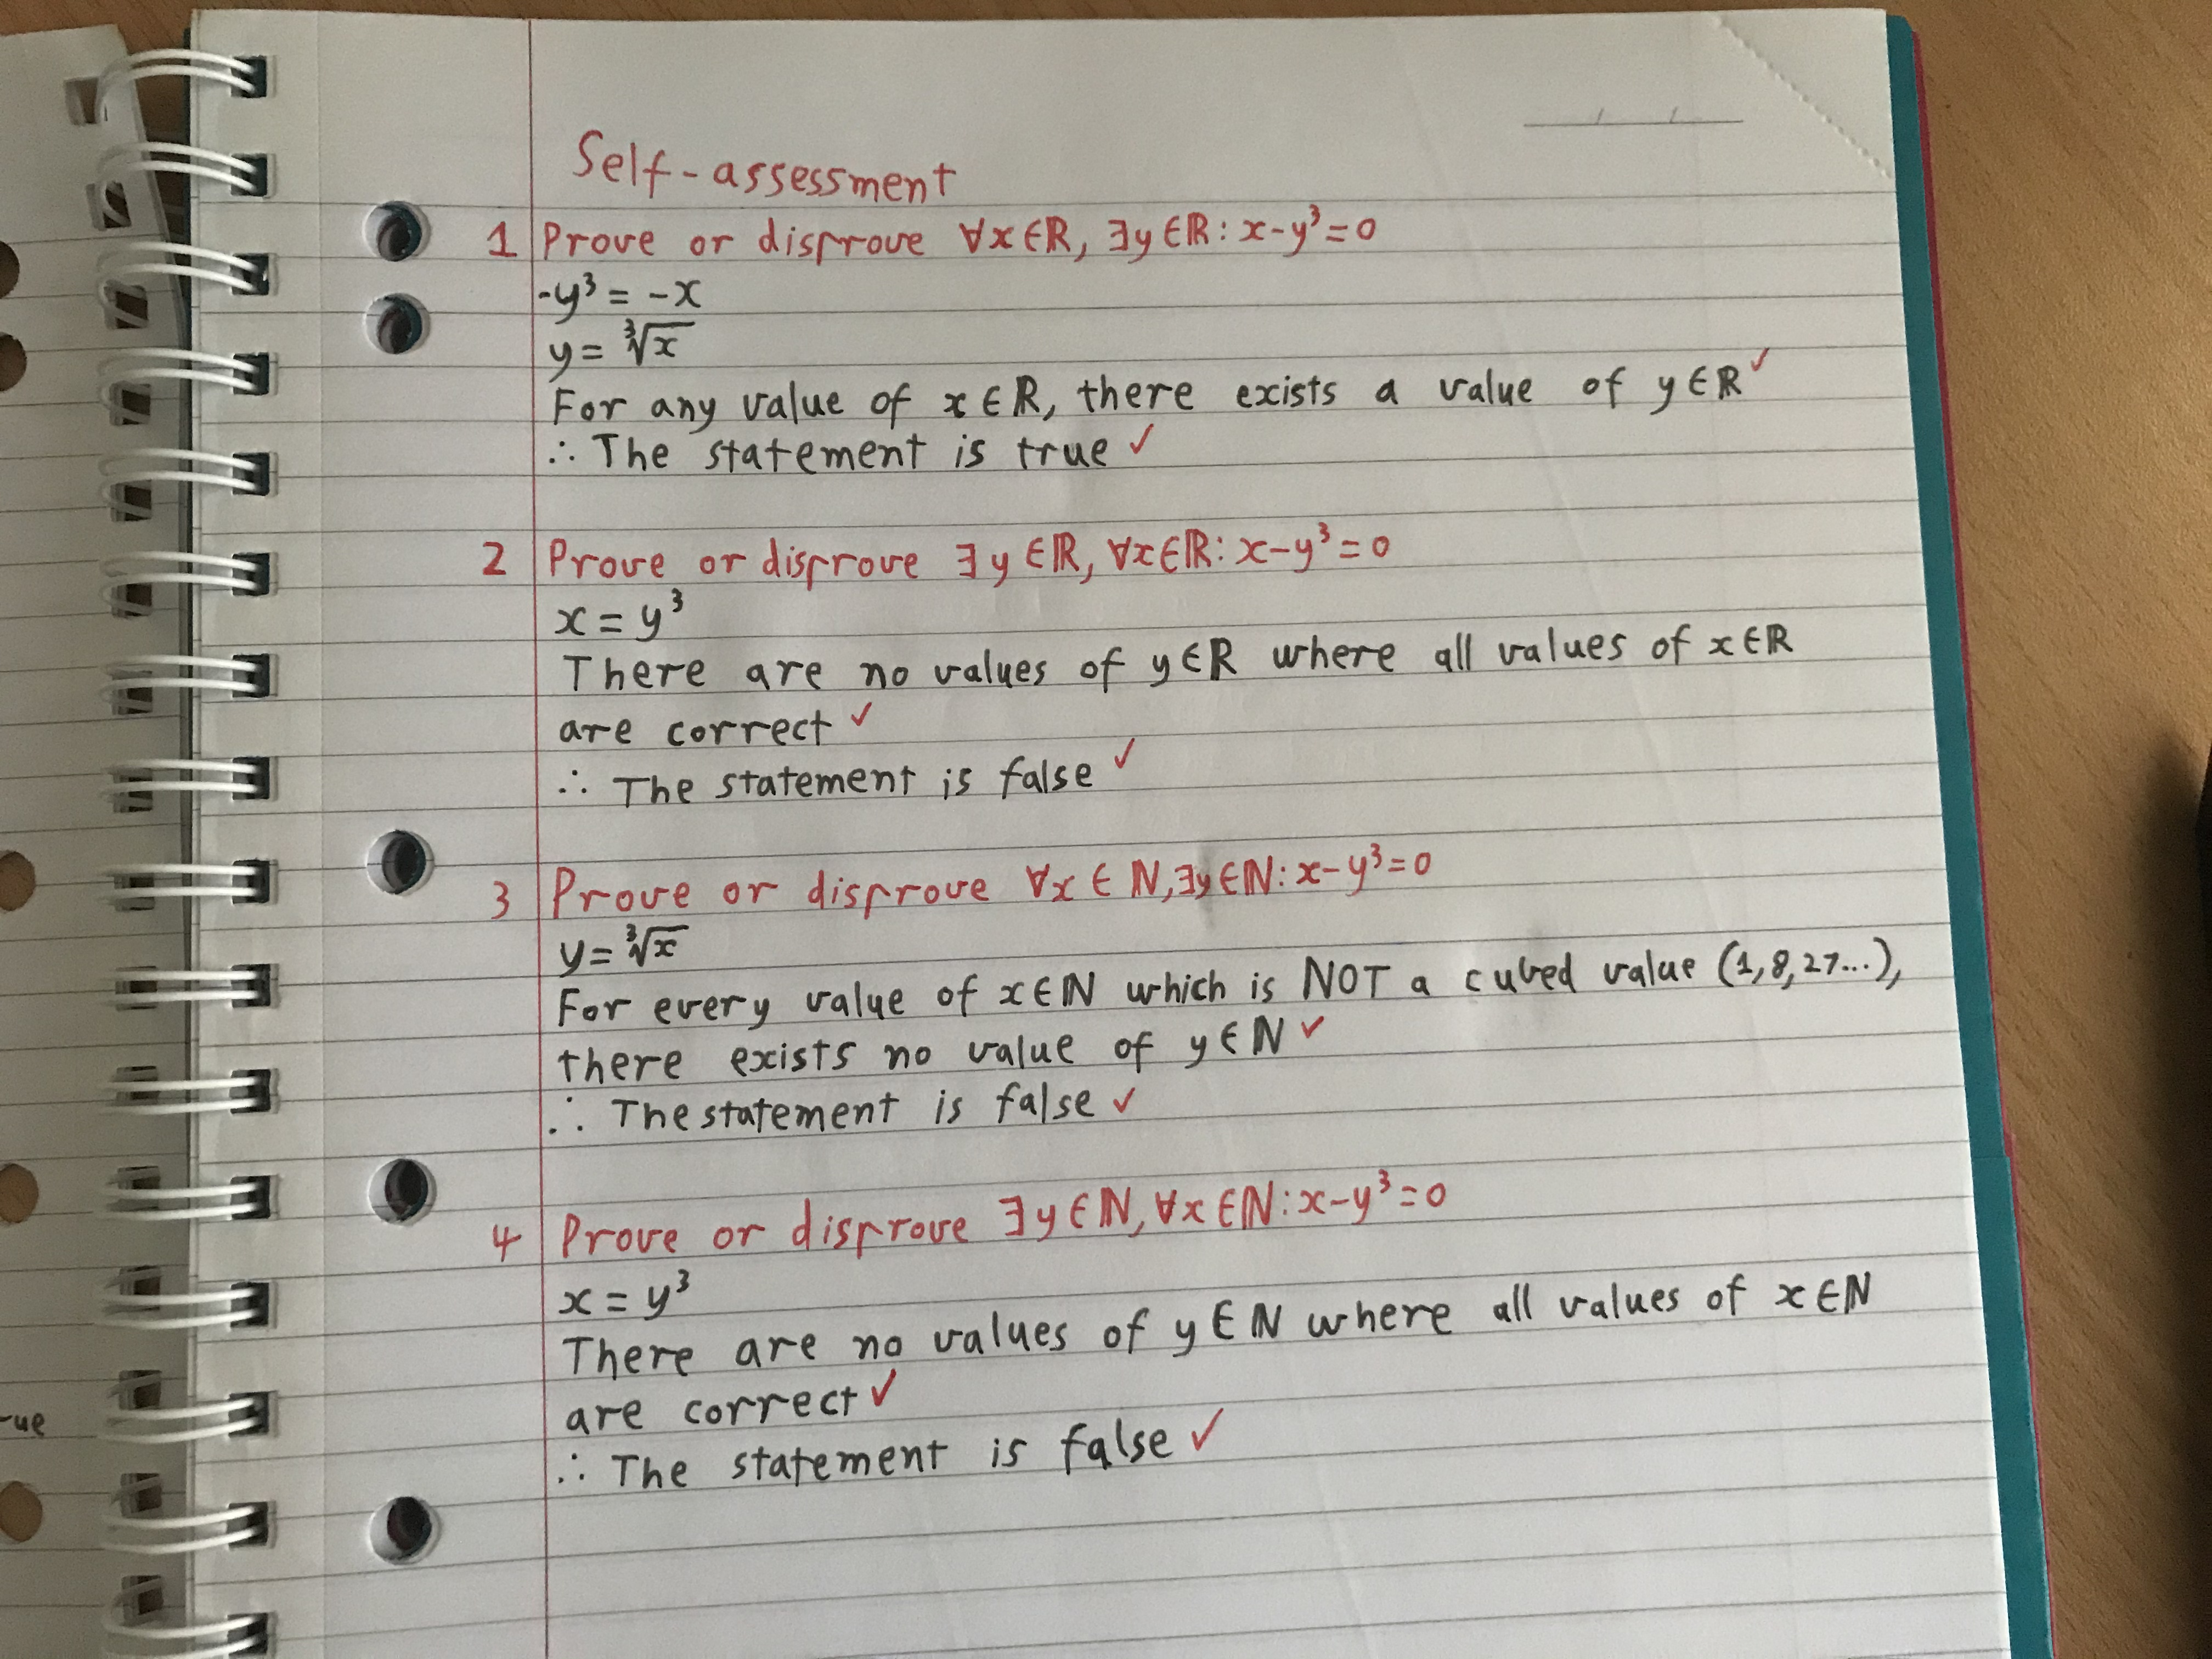 Self-assessment
1 Prove or disprove ∀x∈ℝ, ∃y∈ℝ: x-y³=0
-y³ = -x
y = ∛x
For any value of x∈ℝ, there exists a value of y∈ℝ ✓
∴ The statement is true ✓
2 Prove or disprove ∃y∈ℝ, ∀x∈ℝ: x-y³=0
x = y³
There are no values of y∈ℝ where all values of x∈ℝ
are correct ✓
∴ The statement is false ✓
3 Prove or disprove ∀x∈ℕ, ∃y∈ℕ: x-y³=0
y = ∛x
For every value of x∈ℕ which is NOT a cubed value (1,8,27...),
there exists no value of y∈ℕ ✓
∴ The statement is false ✓
4 Prove or disprove ∃y∈ℕ, ∀x∈ℕ: x-y³=0
x = y³
There are no values of y∈ℕ where all values of x∈ℕ
are correct ✓
∴ The statement is false ✓